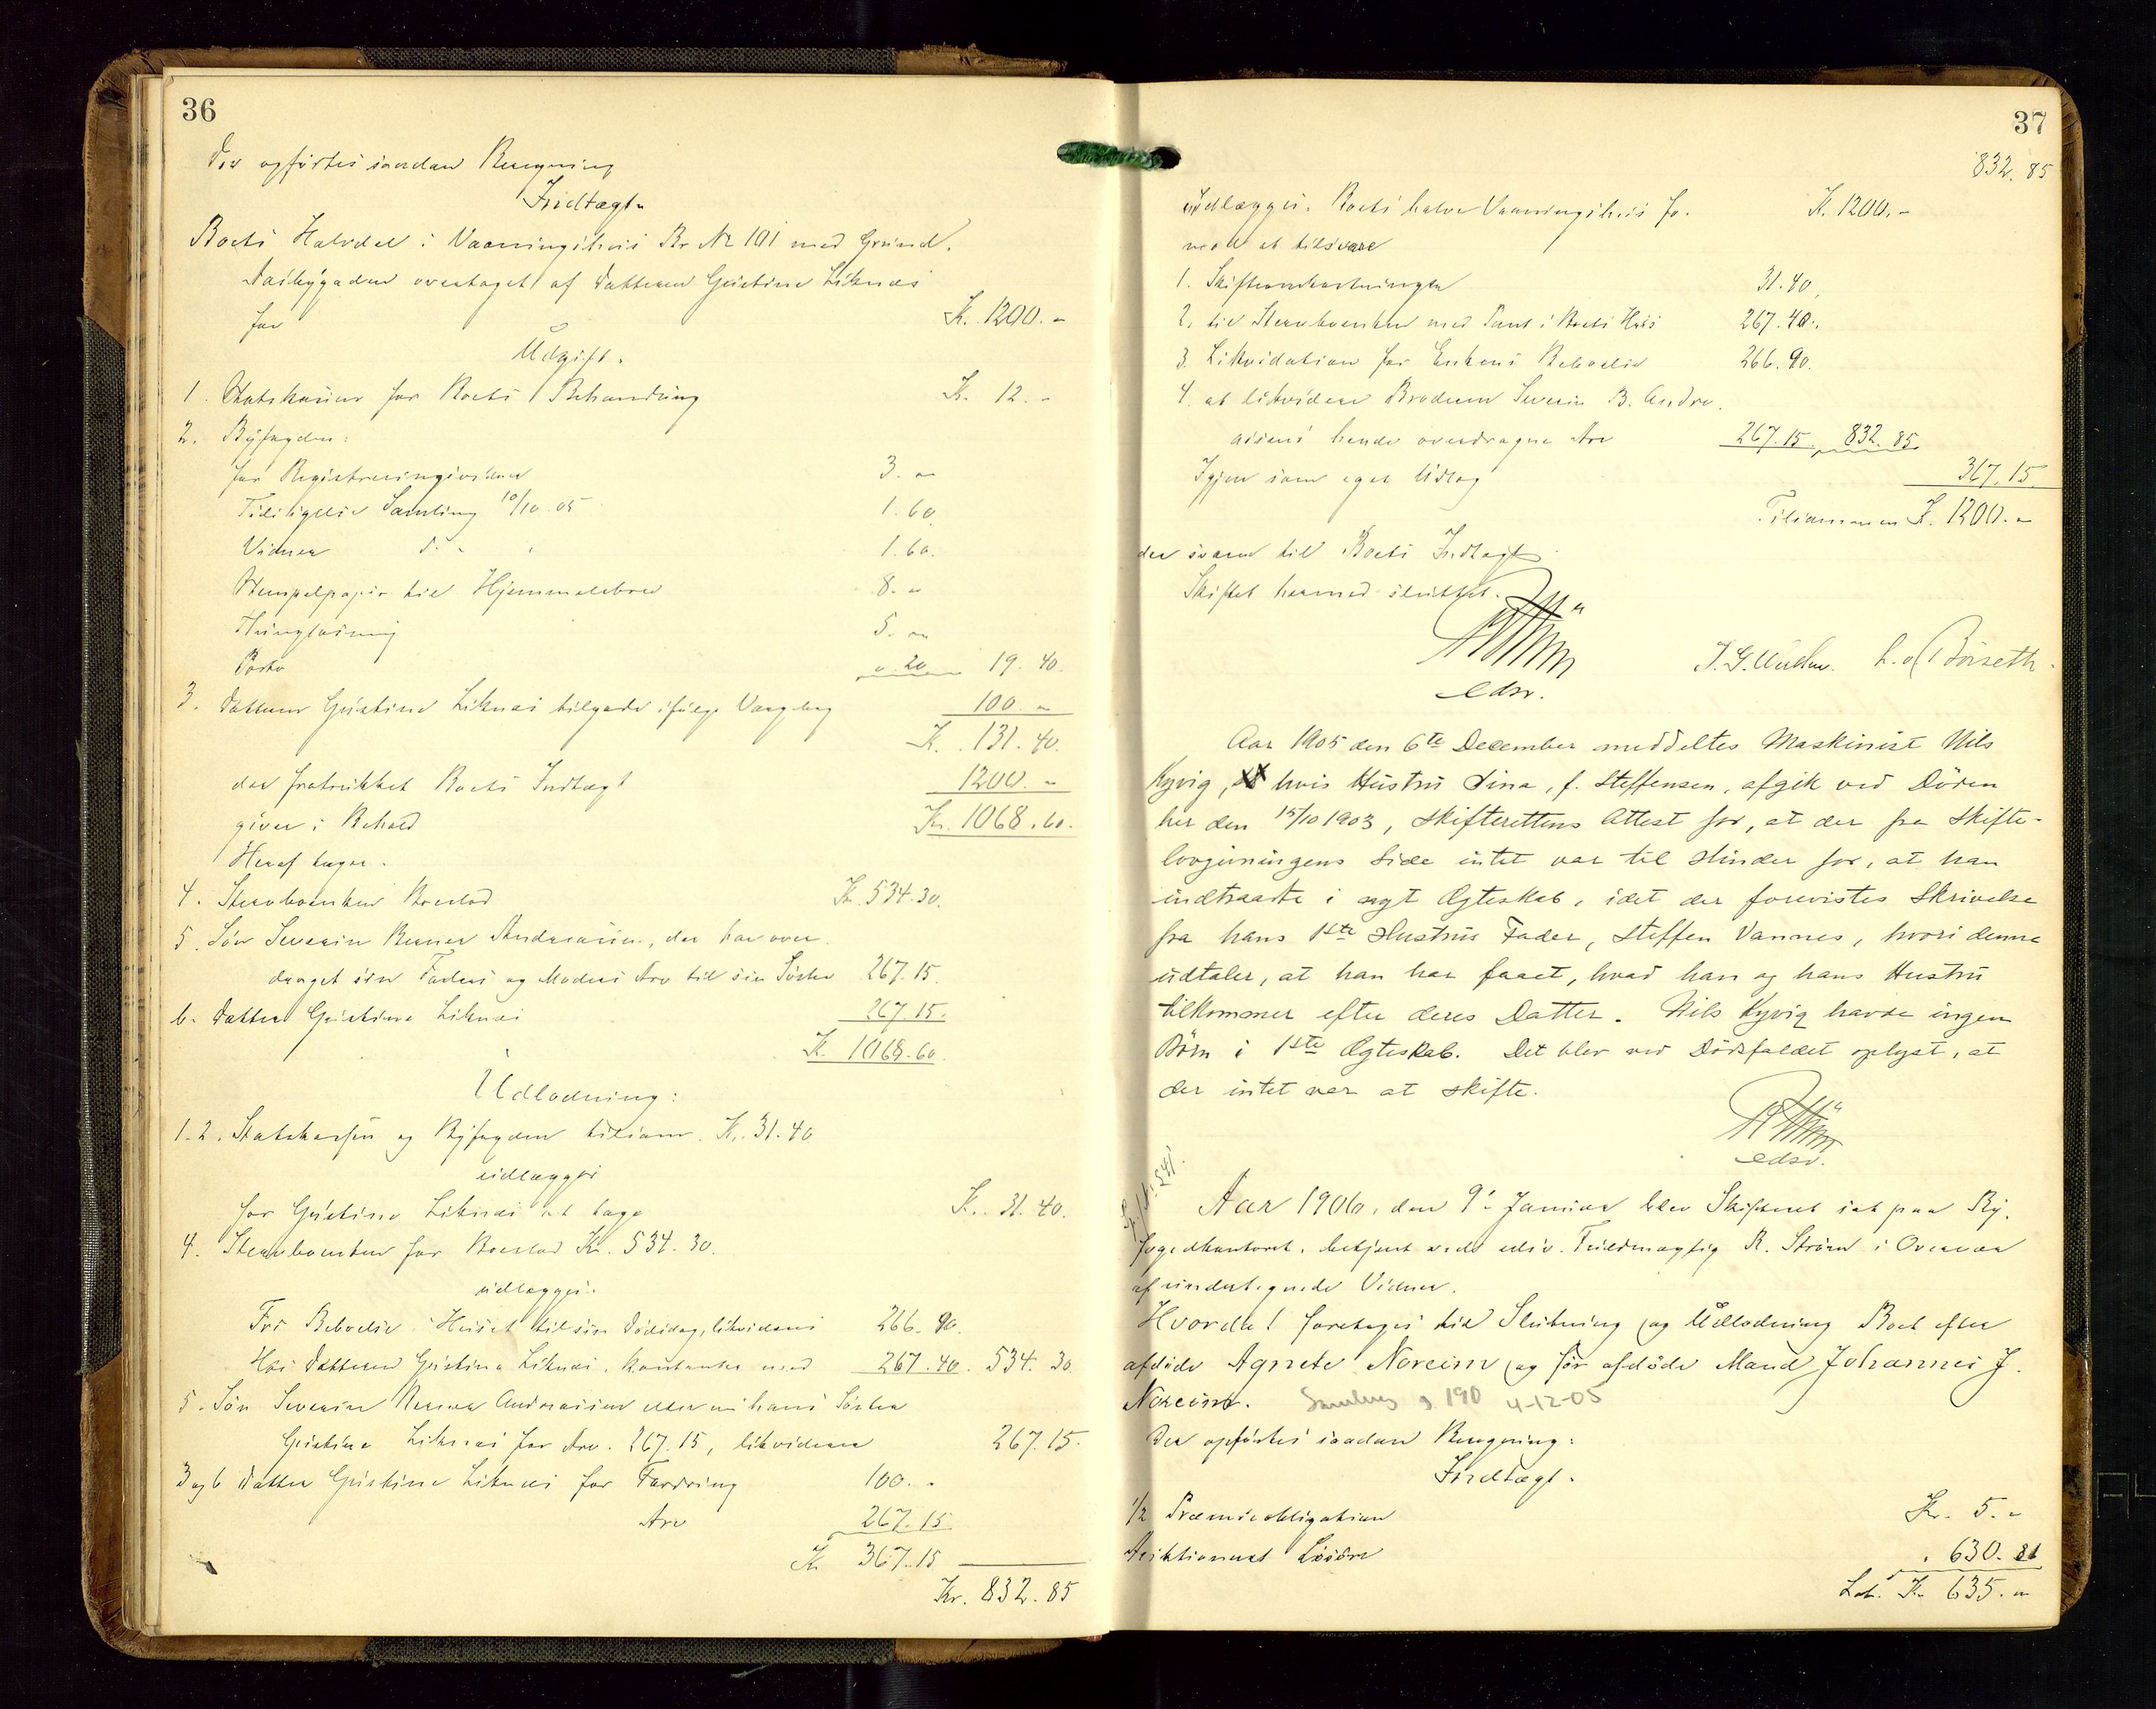 36
Der opførtes saadan Beregning
Indtægt
Boets Halvdel i Vaaningshus Br. No 101 med Grund.
overtaget af Datteren Gjertine Liknæs
for K. 1200.-
Udgift.
1. Statskassen for Boets Behandling K. 12.-
2. Byfogden:
for Registreringsvidner 3.-
Tidligere Samling 10/10 05 1.60.
Vidner d. - 1.60.
Stempelpapir til Hjemmelsbrev 8.-
Thinglæsning 5.-
Porto 0.20 19.40.
3. Datteren Gjertine Liknæs tilgode ifølge 100.-
K. 131.40.
der fratrukket Boets Indtægt 1200.-
giver i Behold Kr. 1068.60.
Heraf tager.
4. Stervboenken Boeslod K. 534.30.
5. Søn Severin Berner Andreassen, der har over
draget sin Faders og Moders Arv til sin Søster 267.15.
6. Datter Gjertine Liknæs 267.15.
K. 1068.60.
Udlodning:
1-2. Statskassen og Byfogden tilsam. K. 31.40
udlægges
for Gjertine Liknæs at tage K. 31.40.
4. Stervboenken for Boeslod Kr. 534.30.
udlægges.
Fri Beboelse i Huset til sin Dødsdag, likvideres 266.90.
Hos Datteren Gjertine Liknæs, kontanter med 267.40. 534.30
5. Søn Severin Berner Andreassen eller nu hans Søster
Gjertine Liknæs for Arv. 267.15, likviderer 267.15.
3 og 6 Datter Gjertine Liknæs for Fordring 100.-
Arv 267.15
K 367.15
Kr. 832.85
37
832.85
Udlægges. Boets halve Vaaningshus for K. 1200.-
mod at tilsvare
1. Skifteomkostningen 31.40,
2, til Stervboenken med Pant i Boets Hus 267.40.
3. Likvidation for Enkens Beboelse 266.90.
4. at likvidere Broderen Severin B. Andre.
assens hende overdragne Arv 267.15. 832.85
Igjen som eget Udlæg 367.15.
Tilsammen K. 1200.-
der svarer til Boets Indtægt
Skiftet hermed sluttet.
edsv.
Aar 1905 den 6te December meddeltes Maskinist Nils
Kyvig, hvis Hustru Lina, f. Steffensen, afgik ved Døden
her den 15/10 1903, Skifterettens Attest for, at der fra Skifte-
lovgivningens Side intet var til Hinder for, at han
indtraadte i nyt Ægteskab, idet der forevistes Skrivelse
fra hans 1ste Hustrus Fader, Steffen Vannes, hvori denne
udtaler, at han har faaet, hvad han og hans Hustru
tilkommer efter deres Datter. Nils Kyvig havde ingen
Børn i 1ste Ægteskab. Det blev ved Dødsfaldet oplyst, at
der intet var at skifte.
edsv.
Aar 1906, den 9' Januar blev Skifteret sat paa By.
fogedkontoret, betjent ved edsv. Fuldmægtig R. Strøm i Overvær
af undertegnede Vidner.
Hvorda! foretoges til Slutning og Udlodning Boet efter
afdøde Agnete Noreim og før afdøde Mand Johannes J.
Noreim. Samling s 190 4-12-05
Der opførtes saadan Beregning:
Indtægt.
1/2 Præmieobligation Kr. 5.-
Auktioneret Løsøre . 630.
Lat. K. 635.-